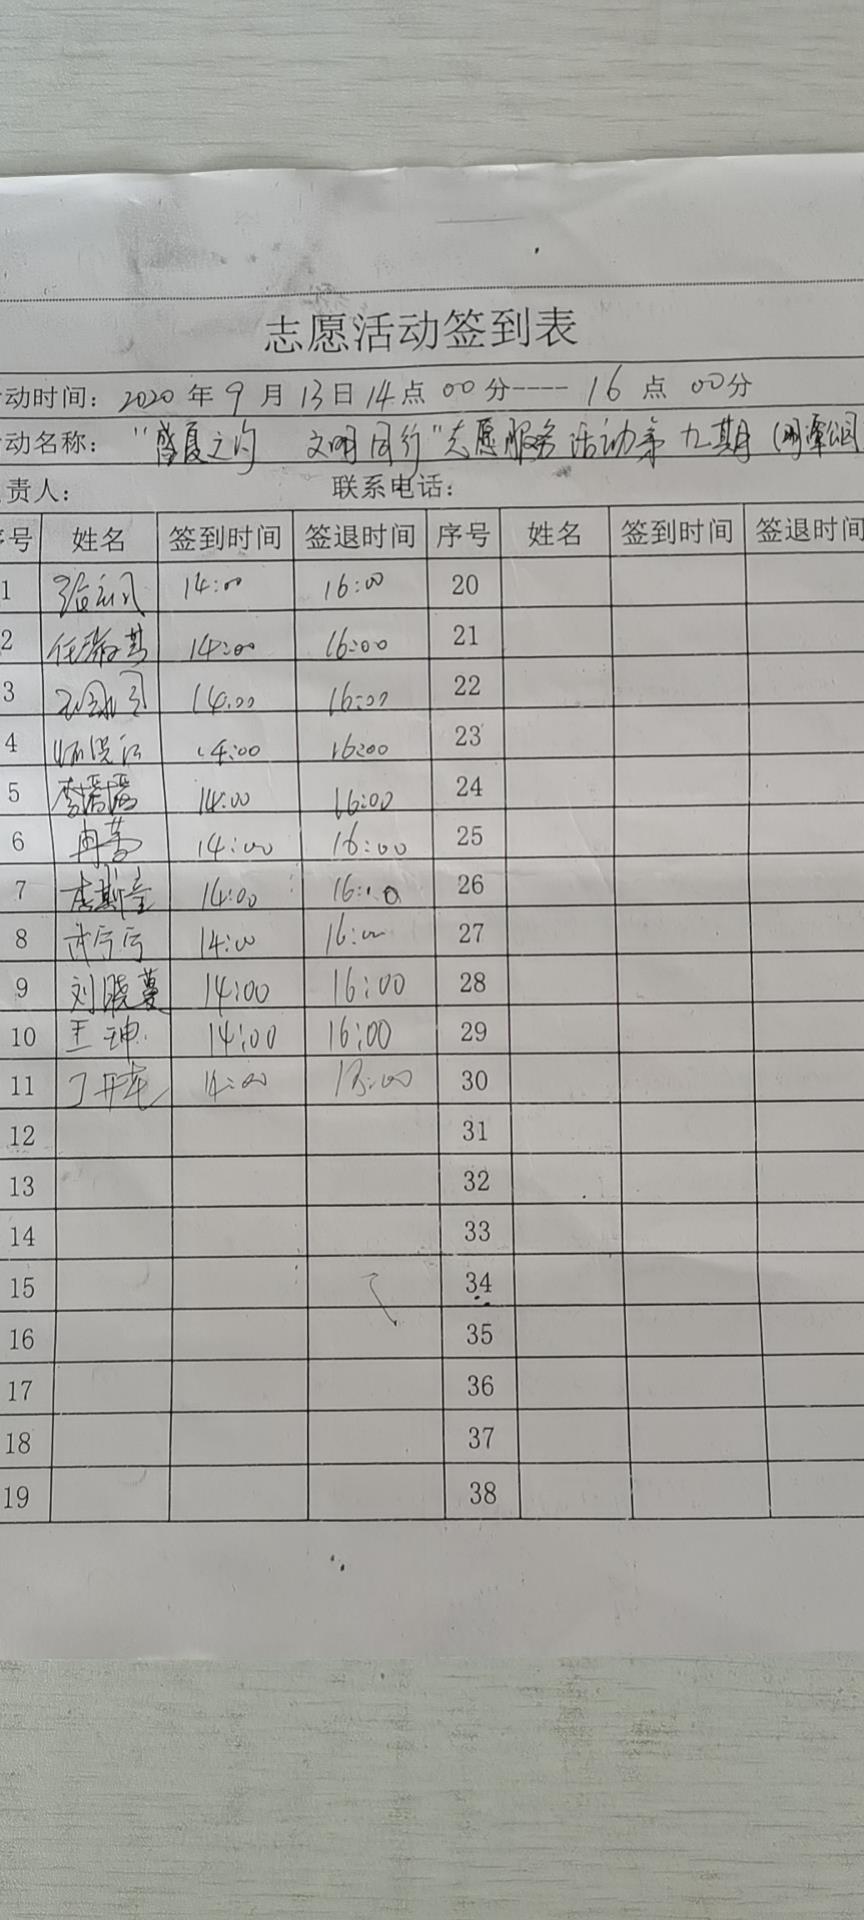 志愿活动签到表
动时间：2020年9月13日14点00分----16点00分
动名称：“盛夏之约 文明同行”志愿服务活动第九期（
责人： 联系电话：
序号 姓名 签到时间 签退时间 序号 姓名 签到时间 签退时间
1 14:00 16:00 20
2 14:00 16:00 21
3 14:00 16:00 22
4 14:00 16:00 23
5 李 14:00 16:00 24
6 冉 14:00 16:00 25
7 李斯童 14:00 16:00 26
8 14:00 16:00 27
9 刘晓蔓 14:00 16:00 28
10 王坤 14:00 16:00 29
11 丁开 14:00 30
12 31
13 32
14 33
15 34
16 35
17 36
18 37
19 38